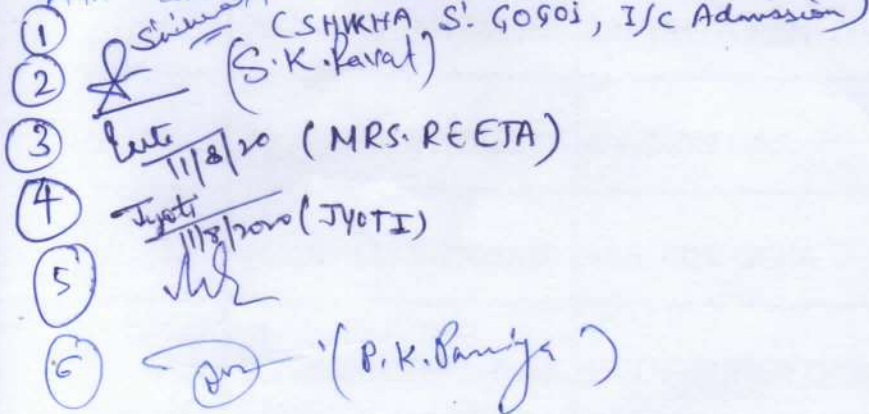 ① Shikha (SHIKHA S. GOGOI, I/C Admission)
② (S.K. Ravat)
③ 11/8/20 (MRS. REETA)
④ Jyoti 11/8/2020 (JYOTI)
⑤
⑥ (P.K.